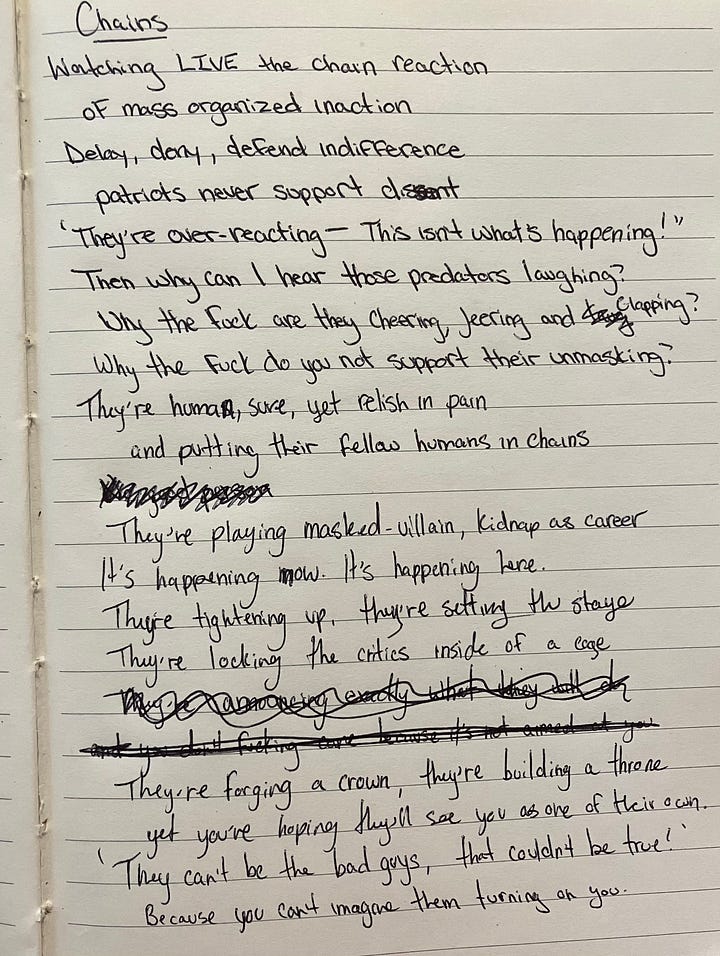 Chains
Watching LIVE the chain reaction
of mass organized inaction
Delay, deny, defend indifference
patriots never support dissent
"They're over-reacting – This isn't what's happening!"
Then why can I hear those predators laughing?
Why the fuck are they cheering, jeering and clapping?
Why the fuck do you not support their unmasking?
They're human, sure, yet relish in pain
and putting their fellow humans in chains
They're playing masked-villain, kidnap as career
It's happening now. It's happening here.
They're tightening up, they're setting the stage
They're locking the critics inside of a cage
They're announcing exactly what they will do
and you don't fucking care because it's not aimed at you
They're forging a crown, they're building a throne
yet you're hoping they'll see you as one of their own.
'They can't be the bad guys, that couldn't be true!'
Because you can't imagine them turning on you.